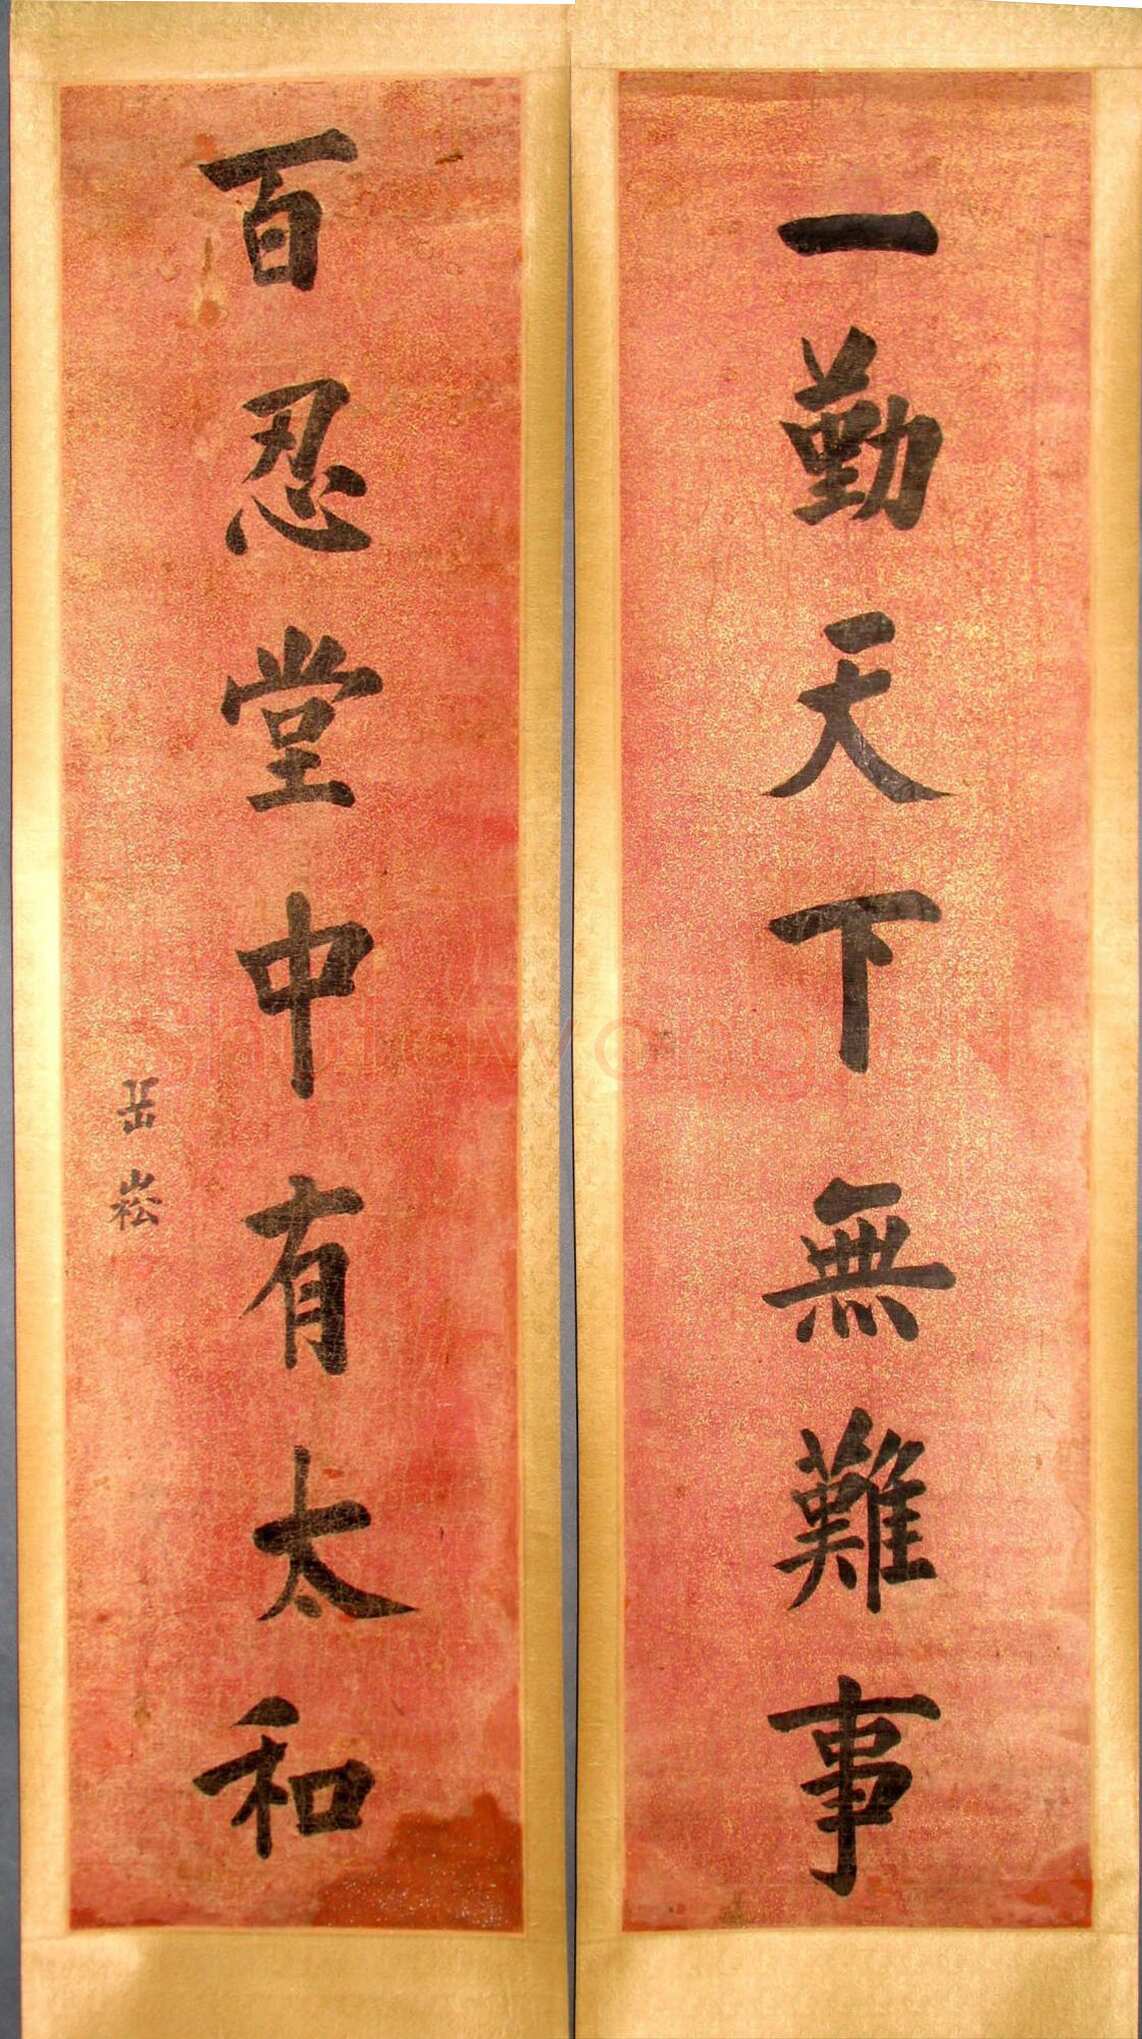 一勤天下無難事
百忍堂中有太和
崧